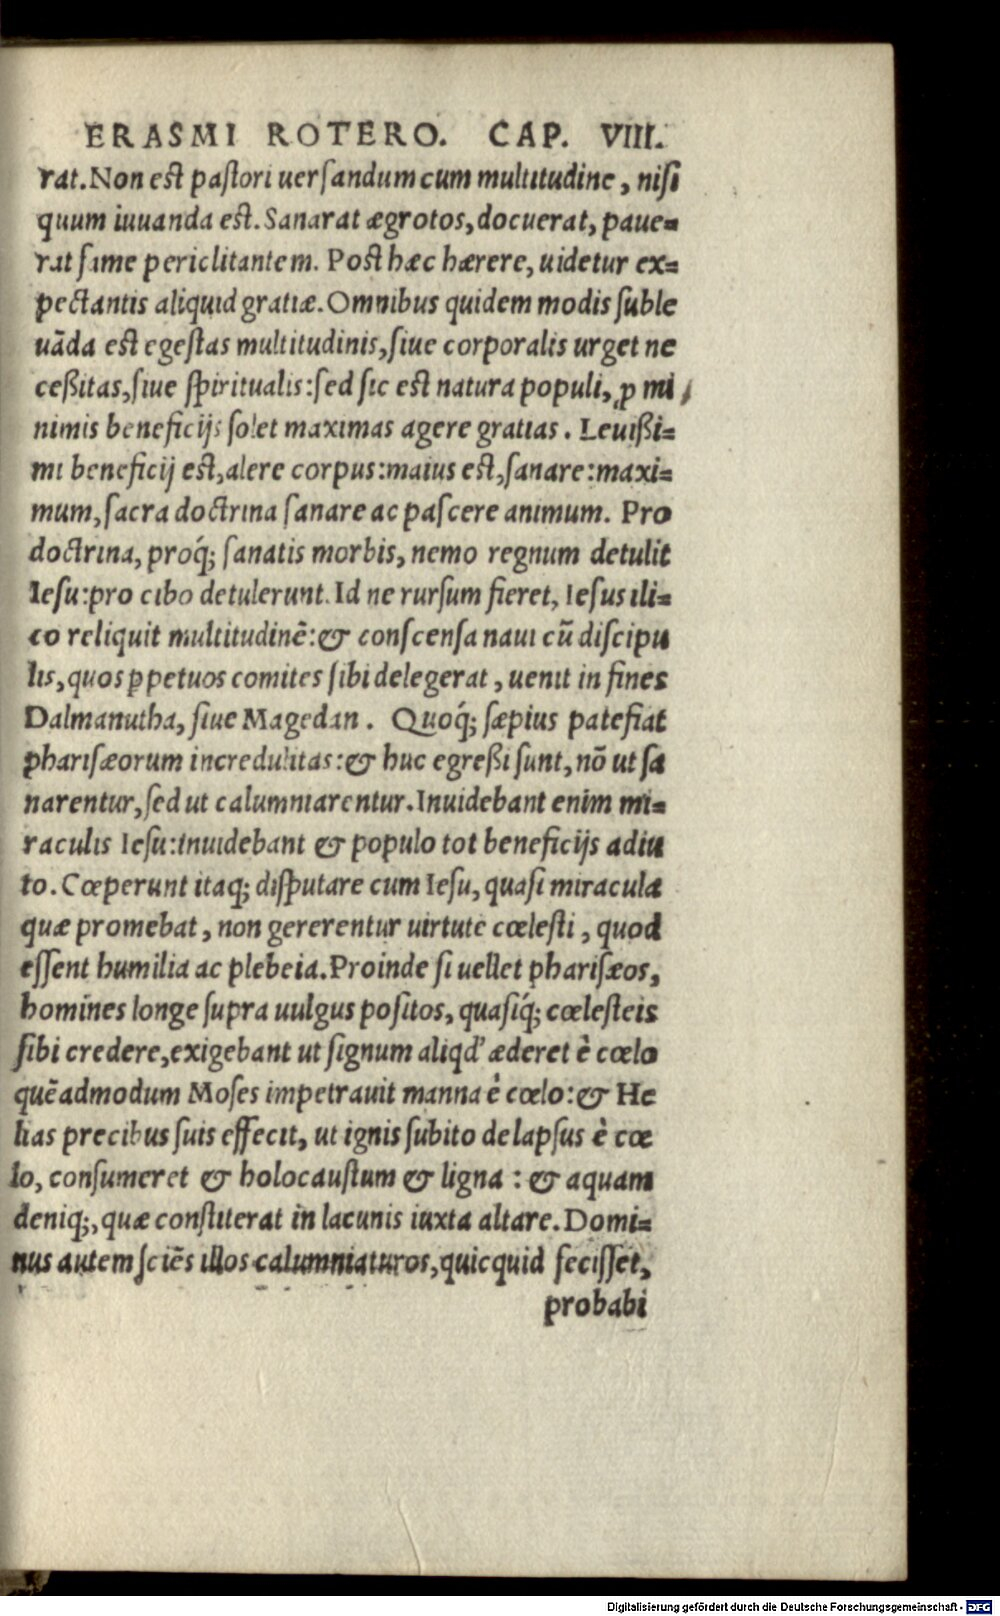 ERASMI ROTERO. CAP. VIII.
rat. Non est pastori uersandum cum multitudine, nisi
quum iuuanda est. Sanarat ægrotos, docuerat, paue=
rat fame periclitantem. Post hæc hærere, uidetur ex=
pectantis aliquid gratiæ. Omnibus quidem modis suble
uāda est egestas multitudinis, siue corporalis urget ne
ceßitas, siue spiritualis: sed sic est natura populi, ꝓ mi
nimis beneficijs solet maximas agere gratias. Leuißi=
mi beneficij est, alere corpus: maius est, sanare: maxi=
mum, sacra doctrina sanare ac pascere animum. Pro
doctrina, proq́; sanatis morbis, nemo regnum detulit
Iesu: pro cibo detulerunt. Id ne rursum fieret, Iesus ili=
co reliquit multitudinē: & conscensa naui cū discipu
lis, quos ꝑpetuos comites sibi delegerat, uenit in fines
Dalmanutha, siue Magedan. Quoq́; sæpius patefiat
pharisæorum incredulitas: & huc egreßi sunt, nō ut sa
narentur, sed ut calumniarentur. Inuidebant enim mi=
raculis Iesu: inuidebant & populo tot beneficijs adiu
to. Cœperunt itaq; disputare cum Iesu, quasi miracula
quæ promebat, non gererentur uirtute cœlesti, quod
essent humilia ac plebeia. Proinde si uellet pharisæos,
homines longe supra uulgus positos, quasiq́; cœlesteis
sibi credere, exigebant ut signum aliqd' æderet è cœlo
quēadmodum Moses impetrauit manna è cœlo: & He
lias precibus suis effecit, ut ignis subito delapsus è cœ
lo, consumeret & holocaustum & ligna: & aquam
deniq;, quæ constiterat in lacunis iuxta altare. Domi=
nus autem sciēs illos calumniaturos, quicquid fecisset,
probabi
Digitalisierung gefördert durch die Deutsche Forschungsgemeinschaft - DFG